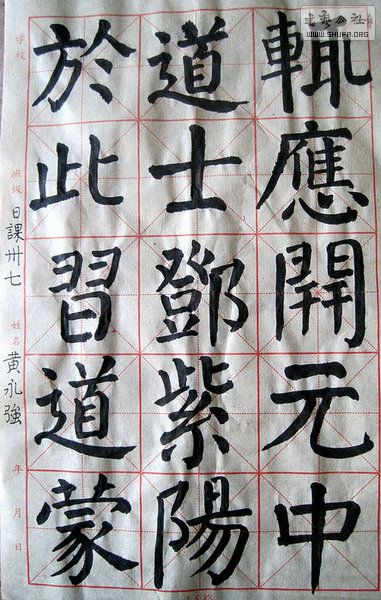 輒應開元中
道士鄧紫陽
於此習道蒙
學校
班級
日課卅七
姓名
黄永強
年 月 日
WWW.SHUFA.ORG